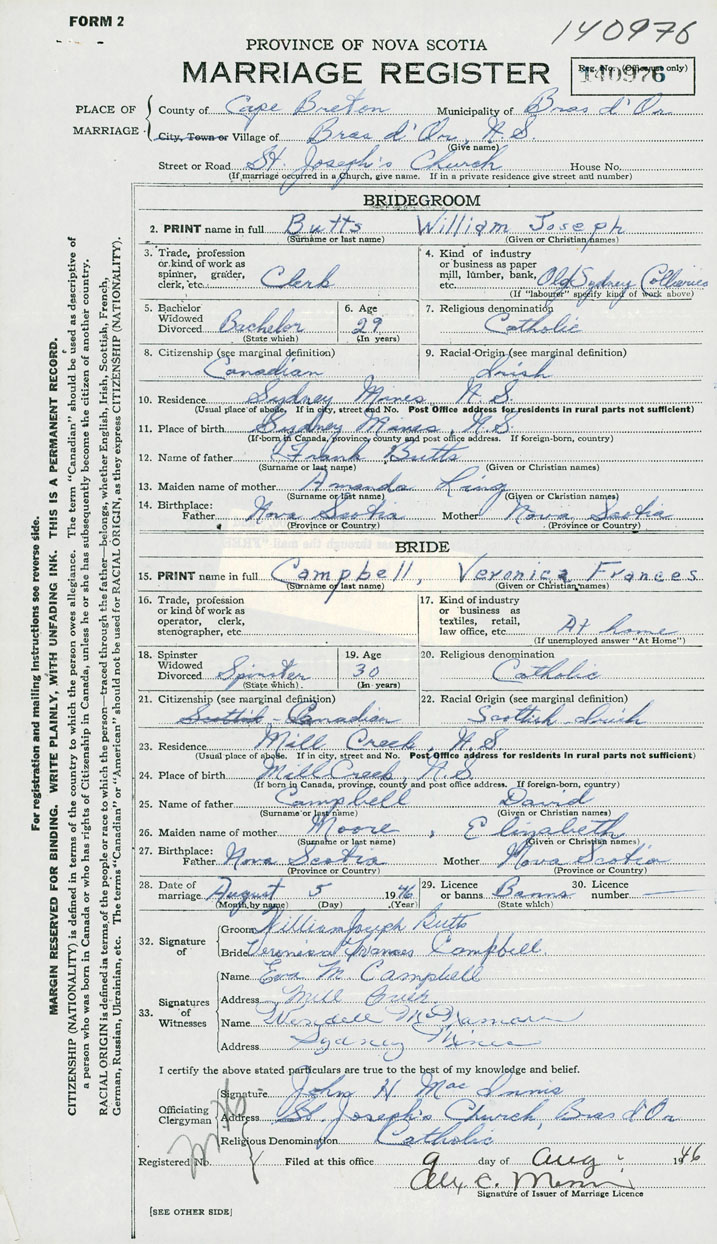 FORM 2
140976
PROVINCE OF NOVA SCOTIA
MARRIAGE REGISTER
Reg. No. (Office use only)
140976
PLACE OF MARRIAGE
County of Cape Breton Municipality of Bras d'Or
City, Town or Village of Bras d'Or, N.S.
(Give name)
Street or Road St. Joseph's Church House No.
(If marriage occurred in a Church, give name. If in a private residence give street and number)
BRIDEGROOM
2. PRINT name in full Butts William Joseph
(Surname or last name) (Given or Christian names)
3. Trade, profession or kind of work as spinner, grader, clerk, etc. Clerk
4. Kind of industry or business as paper mill, lumber, bank, etc. Old Sydney Collieries
(If "labourer" specify kind of work above)
5. Bachelor Widowed Divorced Bachelor
(State which)
6. Age 29
(In years)
7. Religious denomination
Catholic
8. Citizenship (see marginal definition)
Canadian
9. Racial Origin (see marginal definition)
Irish
10. Residence Sydney Mines N.S.
(Usual place of abode. If in city, street and No. Post Office address for residents in rural parts not sufficient)
11. Place of birth Sydney Mines, N.S.
(If born in Canada, province, county and post office address. If foreign-born, country)
12. Name of father Frank Butts
(Surname or last name) (Given or Christian names)
13. Maiden name of mother Amanda King
(Surname or last name) (Given or Christian names)
14. Birthplace: Father Nova Scotia Mother Nova Scotia
(Province or Country) (Province or Country)
BRIDE
15. PRINT name in full Campbell, Veronica Frances
(Surname or last name) (Given or Christian names)
16. Trade, profession or kind of work as operator, clerk, stenographer, etc.
17. Kind of industry or business as textiles, retail, law office, etc. At home
(If unemployed answer "At Home")
18. Spinster Widowed Divorced Spinster
(State which)
19. Age 30
(In years)
20. Religious denomination
Catholic
21. Citizenship (see marginal definition)
Scottish - Canadian
22. Racial Origin (see marginal definition)
Scottish - Irish
23. Residence Mill Creek, N.S.
(Usual place of abode. If in city, street and No. Post Office address for residents in rural parts not sufficient)
24. Place of birth Mill Creek, N.S.
(If born in Canada, province, county and post office address. If foreign-born, country)
25. Name of father Campbell David
(Surname or last name) (Given or Christian names)
26. Maiden name of mother Moore, Elizabeth
(Surname or last name) (Given or Christian names)
27. Birthplace: Father Nova Scotia Mother Nova Scotia
(Province or Country) (Province or Country)
28. Date of marriage August 5 1946
(Month by name) (Day) (Year)
29. Licence or banns Banns
(State which)
30. Licence number
32. Signature of
Groom William Joseph Butts
Bride Veronica Frances Campbell
33. Signatures of Witnesses
Name Eva M. Campbell
Address Mill Creek
Name Wendell McNamara
Address Sydney Mines
I certify the above stated particulars are true to the best of my knowledge and belief.
Officiating Clergyman
Signature John H. MacInnis
Address St. Joseph's Church, Bras d'Or
Religious Denomination Catholic
Registered No. Filed at this office 9 day of Aug. 1946
Alex C.
Signature of Issuer of Marriage Licence
[SEE OTHER SIDE]
For registration and mailing instructions see reverse side.
MARGIN RESERVED FOR BINDING. WRITE PLAINLY, WITH UNFADING INK. THIS IS A PERMANENT RECORD.
CITIZENSHIP (NATIONALITY) is defined in terms of the country to which the person owes allegiance. The term "Canadian" should be used as descriptive of
a person who was born in Canada or who has rights of Citizenship in Canada, unless he or she has subsequently become the citizen of another country.
RACIAL ORIGIN is defined in terms of the people or race to which the person—traced through the father—belongs, whether English, Irish, Scottish, French,
German, Russian, Ukrainian, etc. The terms "Canadian" or "American" should not be used for RACIAL ORIGIN, as they express CITIZENSHIP (NATIONALITY).